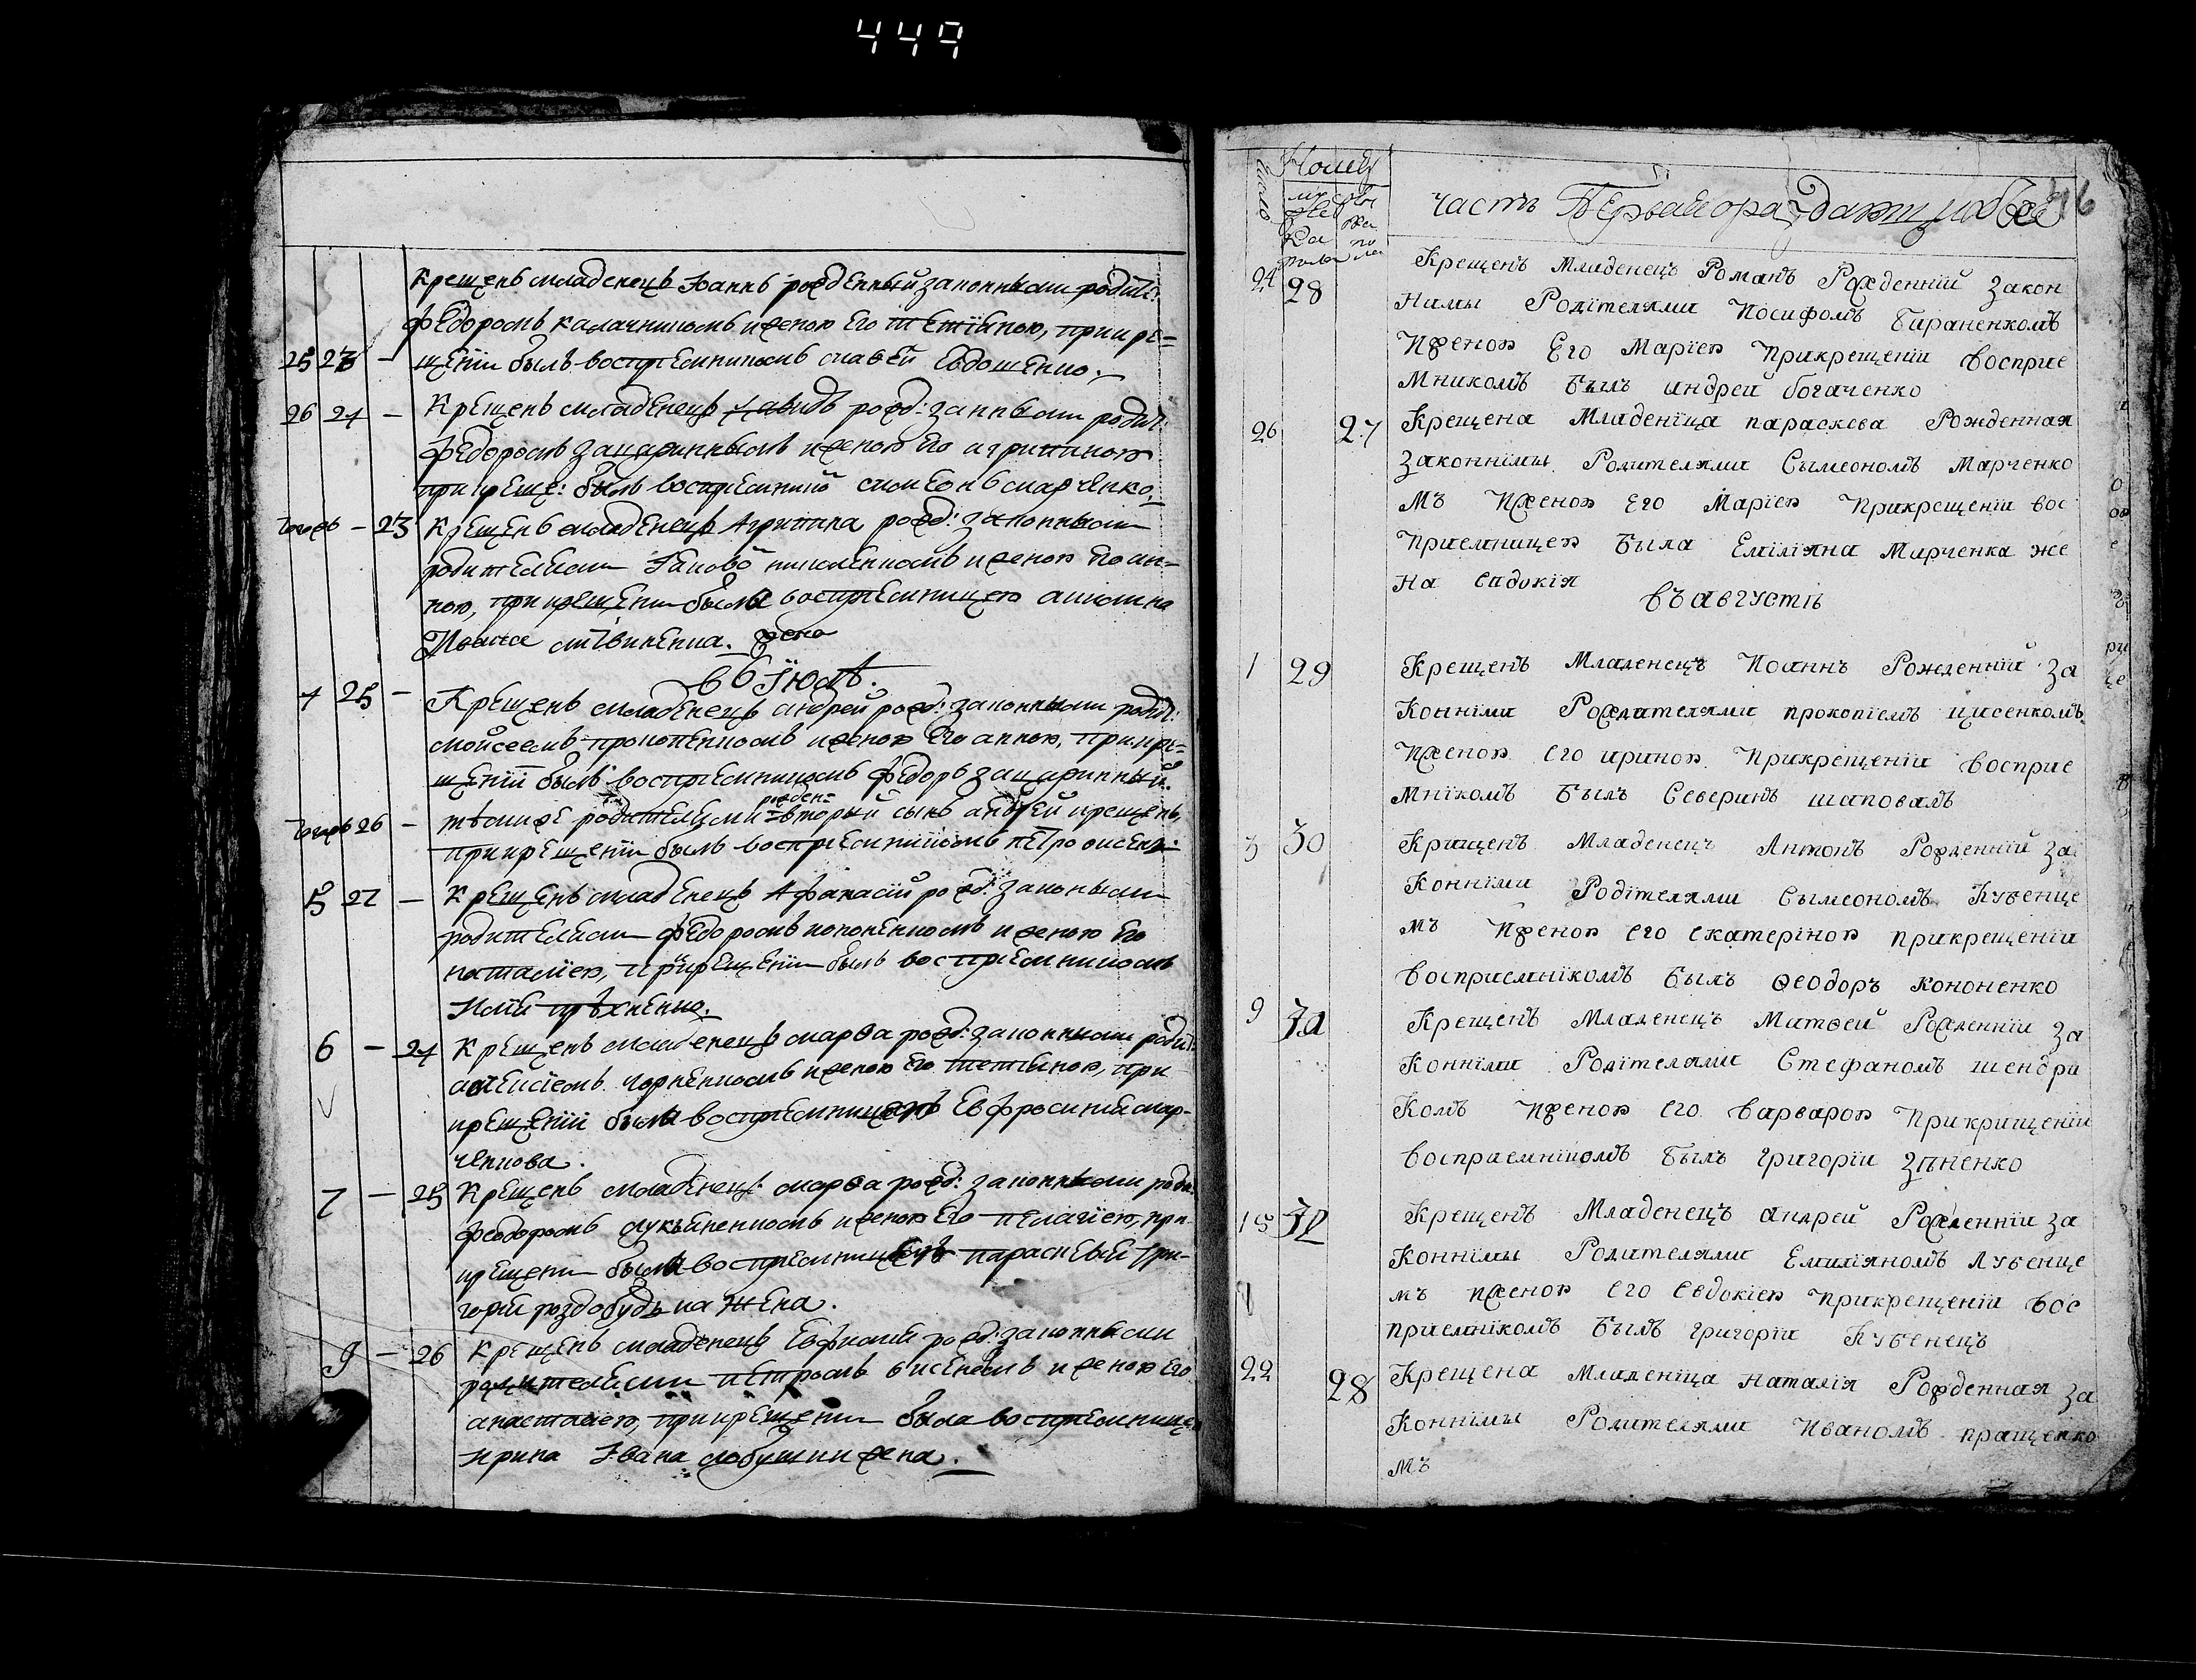 449
Крещенъ младенецъ Іоаннъ рожденный законными родите:
Федоромъ Калачникомъ иженою Его Тетіѣною, прикре=
25 23 – щеніи былъ воспріемникомъ Матвей Евдошенко.
26 24 – Крещенъ младенецъ Давидъ рожд: закными родит:
Федоромъ Зацариннымъ иженою Его Агрипиною
прикреще: былъ воспріемникъ Симеонъ Марченко.
– 23 Крещенъ младенецъ Агрипина рожд: законными
родителями иженою Его Ан=
ною, прикрещеніи была воспріемницею
Ивана Литвиненка жена
въ Іюлѣ.
4 25 – Крещенъ младенецъ Андрей рожд: законными родит:
Мойсеемъ Прокопенкомъ иженою Его Анною, прикре=
щеніи былъ воспріемникомъ Федоръ Зацаринный.
рожден=
26 – тѣмиже родителями второй сынъ Андрей крещенъ,
прикрещеніи былъ воспріемникомъ Петро
5 27 – Крещенъ младенецъ Афанасій рожд: законными
родителями Федоромъ Кононенкомъ иженою Его
Наталіею, прикрещеніи былъ воспріемникомъ
6 – 24 Крещенъ младенецъ Марѳа рожд: законными родит:
Алексіемъ Чорненкомъ иженою Его Тетіѣною, при
крещеніи была воспріемницею Евфросинія Мар=
ченкова.
7 – 25 Крещенъ младенецъ Марѳа рожд: законными роди:
Феодоромъ Лукьяненкомъ иженою Его Пелагіею, при
крещени была воспріемницею Параскевія Гри=
горія Роздобудька жена.
9 – 26 Крещенъ младенецъ Евфимій рожд: законными
родителями Петромъ иженою Его
Анастасіею, прикрещени была воспріемнице
Ирина Ивана жена.
Номеръ
часть Перьвая ораждающихся 46
24 28 Крещенъ Младенецъ Романъ Рожденній Закон
Нимы Родітелями Иосифомъ Бараненкомъ
Иженою Его Маріею Прикрещеніи Восприе
Мникомъ Былъ Андрей Богаченко
26 27 Крещена Младеніца параскева Рожденная
Законнімы Родителями Сымеономъ Марченко
Мъ Иженою Его Маріею Прикрещеніи Вос
Приемницею Была Еміліяна Марченка Же
На Евдокія
Въ августѣ
1 29 Крещенъ Младенецъ Иоаннъ Рожденній За
Конними Родителями прокопіемъ Цисенкомъ
Иженою Его ириною Прикрещеніи Восприе
Мнікомъ Былъ Северинъ шаповалъ
3 30 Крищенъ Младенецъ Антонъ Рожденній За
Конними Родітелями Сымеономъ Кубенце
мъ Иженою Его Екатеріною прикрещеніи
Восприемнікомъ Былъ Ѳеодоръ Кононенко
9 31 Крещенъ Младенецъ Матѳей Рожденніи За
Конними Родітелями Стефаномъ шендри
Комъ Иженою Его Варварою Прикрищеніи
Восприемнікомъ Былъ григоріи Зѣненко
18 32 Крещенъ Младенецъ андрей Рожденніи За
Коннімы Родителями Емиліяномъ Лубенце
мъ иженою Его Евдокіею прикрещеніи Вос
приемнікомъ Былъ григоріи Кубенецъ
22 28 Крещена Младеніца Наталія Рожденная За
Коннімы Родителями Иваномъ пращенко
мъ